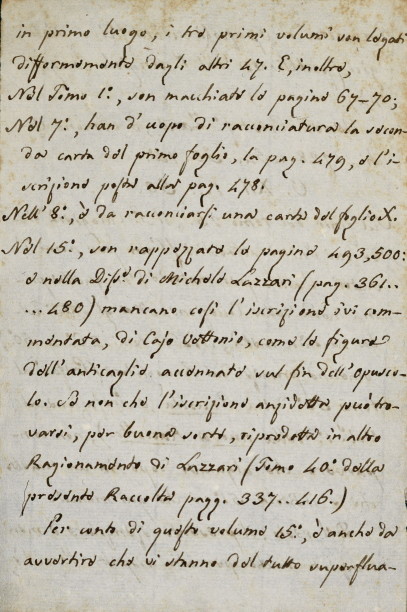 in primo luogo, i tre primi volumi son legati
difformemente dagli altri 47. E, inoltre,
Nel Tomo 1º., son macchiate le pagine 67-70;
Nel 7º., han d'uopo di racconciatura la secon-
da carta del primo foglio, la pag. 479, e l'i-
scrizione posta alla pag. 478.
Nell' 8º., è da racconciarsi una carta del foglio X.
Nel 15º., son rappezzate le pagine 493, 500:
e nella Diss. di Michele Lazzari (pag. 361..
...480) mancano così l'iscrizione ivi com-
mentata, di Cajo Vettenio, come le figure
dell' anticaglie accennate sul fin dell' Opusco-
lo. Se non che l'iscrizione anzidetta può tro-
varsi, per buona sorte, riprodotta in altro
Ragionamento di Lazzari (Tomo 40º. della
presente Raccolta pagg. 337..416.)
Per conto di questo volume 15º., è anche da
avvertire che vi stanno del tutto superflua-